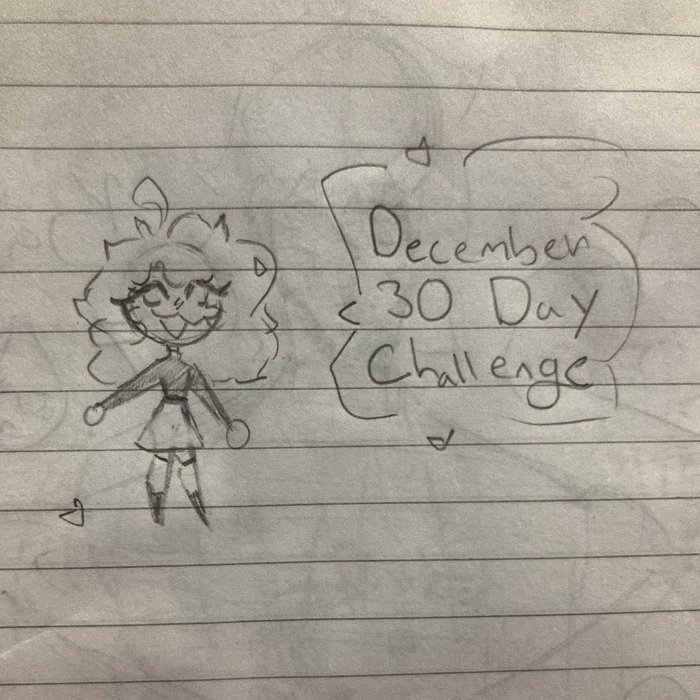 December
30 Day
Challenge